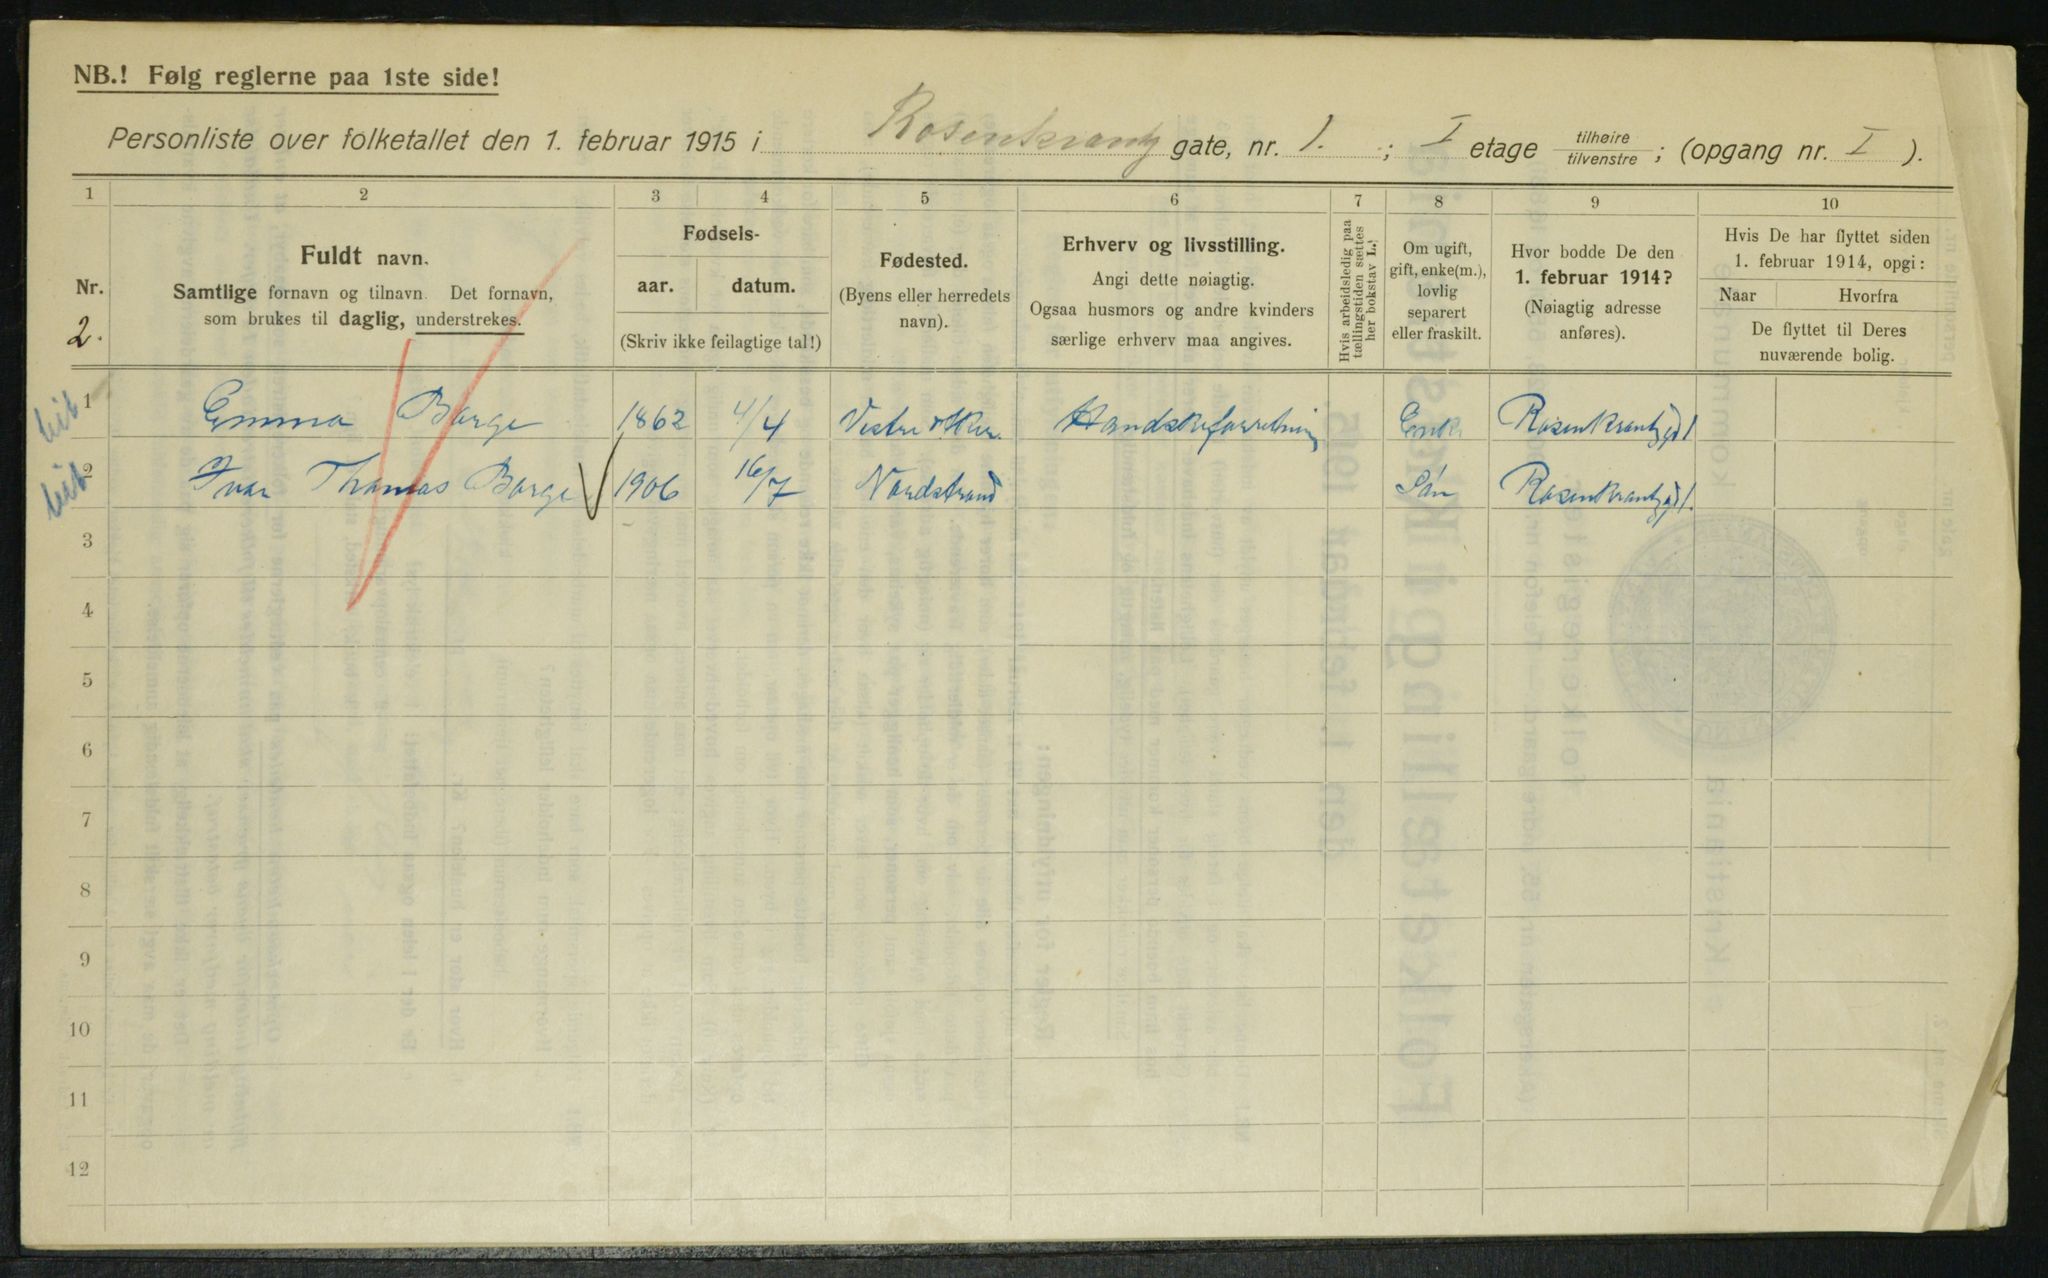 NB.! Følg reglerne paa 1ste side!
Personliste over folketallet den 1. februar 1915 i Rosenkrantz gate, nr. 1. ; I etage tilhøire / tilvenstre ; (opgang nr. I ).
1 2 3 4 5 6 7 8 9 10
Nr.
2.
Fuldt navn.
Samtlige fornavn og tilnavn. Det fornavn,
som brukes til daglig, understrekes.
Fødsels-
aar. datum.
(Skriv ikke feilagtige tal!)
Fødested.
(Byens eller herredets
navn).
Erhverv og livsstilling.
Angi dette nøiagtig.
Ogsaa husmors og andre kvinders
særlige erhverv maa angives.
Hvis arbeidsledig paa
tællingstiden sættes
her bokstav L.)
Om ugift,
gift, enke(m.),
lovlig
separert
eller fraskilt.
Hvor bodde De den
1. februar 1914?
(Nøiagtig adresse
anføres).
Hvis De har flyttet siden
1. februar 1914, opgi:
Naar Hvorfra
De flyttet til Deres
nuværende bolig.
1 Emma Borge 1862 4/4 Vestre Aker. Handskeforretning Enke Rosenkrantzgd 1
2 Ivar Thomas Borge 1906 16/7 Nordstrand Sön Rosenkrantzgd 1.
3
4
5
6
7
8
9
10
11
12